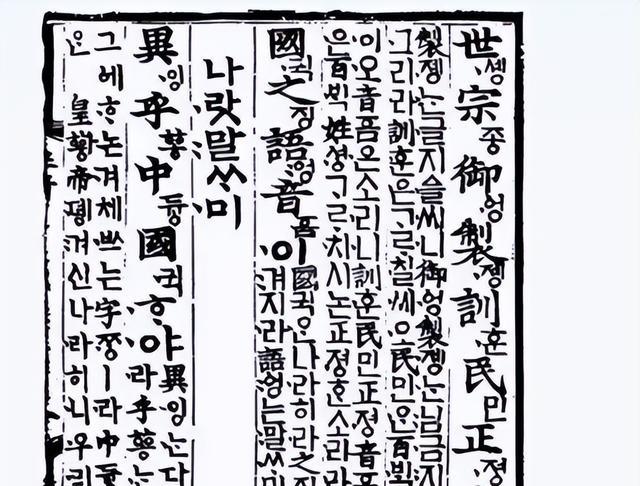 世솅宗종御ᅌᅥᆼ製졩訓훈民민正져ᇰ
製졩ᄂᆞᆫ글지ᅀᅳᆯ씨니御ᅌᅥᆼ製졩ᄂᆞᆫ님금지
그리라訓훈은ᄀᆞᄅᆞ칠씨오民민ᄋᆞᆫ百ᄇᆡᆨ
이오音ᅙᅳᆷ은소리니訓훈民민正져ᇰ音ᅙᅳᆷ
은百ᄇᆡᆨ姓셔ᇰᄀᆞᄅᆞ치시논正져ᇰᄒᆞᆫ소리라
國귁之징語ᅌᅥᆼ音ᅙᅳᆷ이
國귁ᄋᆞᆫ나라히라之징
겨지라語ᅌᅥᆼ는말ᄊᆞ미
나랏말ᄊᆞ미
異잉乎ᅘᅩᆼ中듀ᇰ國귁ᄒᆞ야
異잉ᄂᆞᆫ다
라乎ᅘᅩᆼᄂᆞᆫ
그에ᄒᆞ논겨체ᄡᅳ는字ᄍᆞᆼㅣ라中듀ᇰ
은 皇황帝뎽겨신나라히니우리